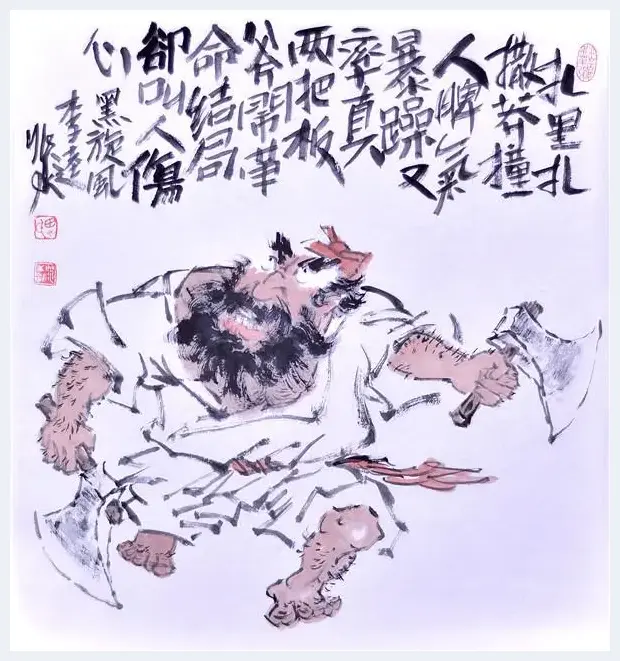 扎里扎
撒莽撞一
人脾氣
暴躁又
率真
两把板
斧鬧革
命结局
卻叫人傷
心
黑旋风
李逵